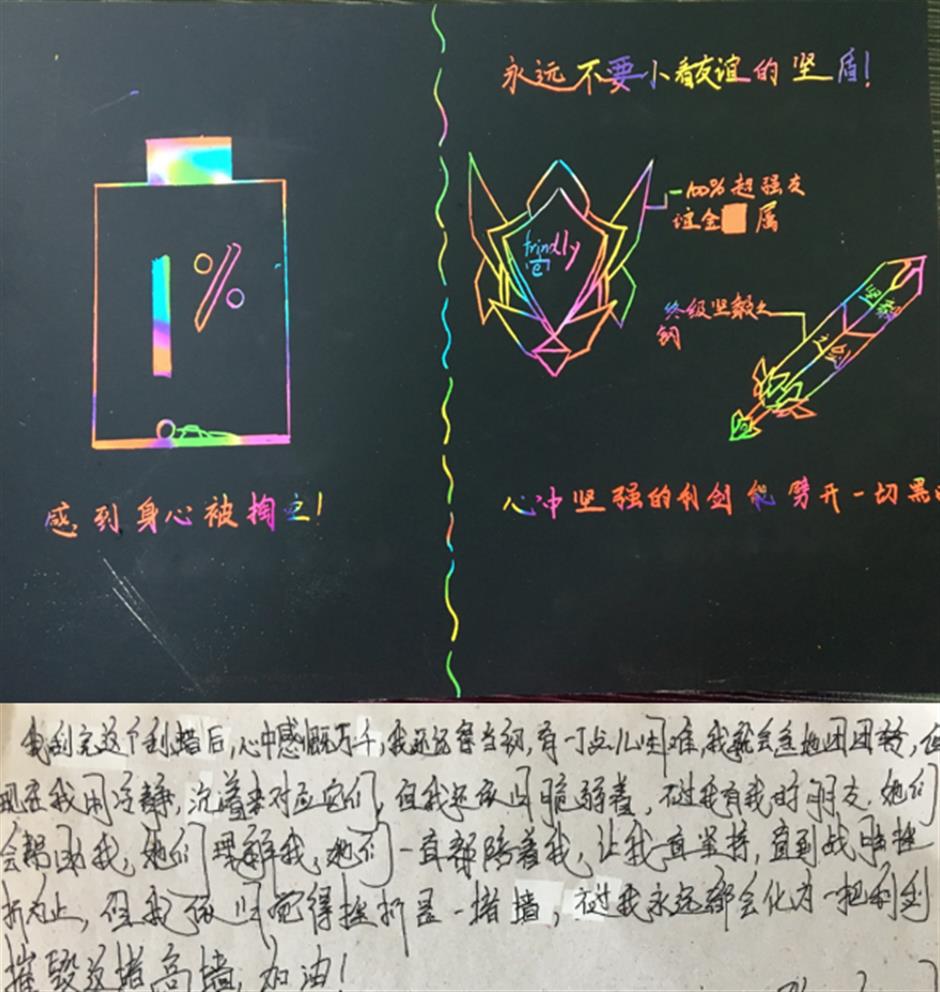 1%
感到身心被掏空!
永远不要小看友谊的坚盾!
100%超强友
谊金属
frindly
e
终级坚毅之
钢
心冲坚强的利剑能劈开一切黑
我刮完这个刮蜡后,心中感慨万千,我还记得当初,有一丁点儿困难,我就会急地团团转,但
现在我用冷静,沉着来对应它们,但我还依旧脆弱着,不过我有我的朋友,她们
会帮助我,她们理解我,她们一直都陪着我,让我一直坚持,直到战胜挫
折为止,但我依旧觉得挫折是一堵墙,不过我永远都会化为一把利剑
摧毁这堵高墙,加油!